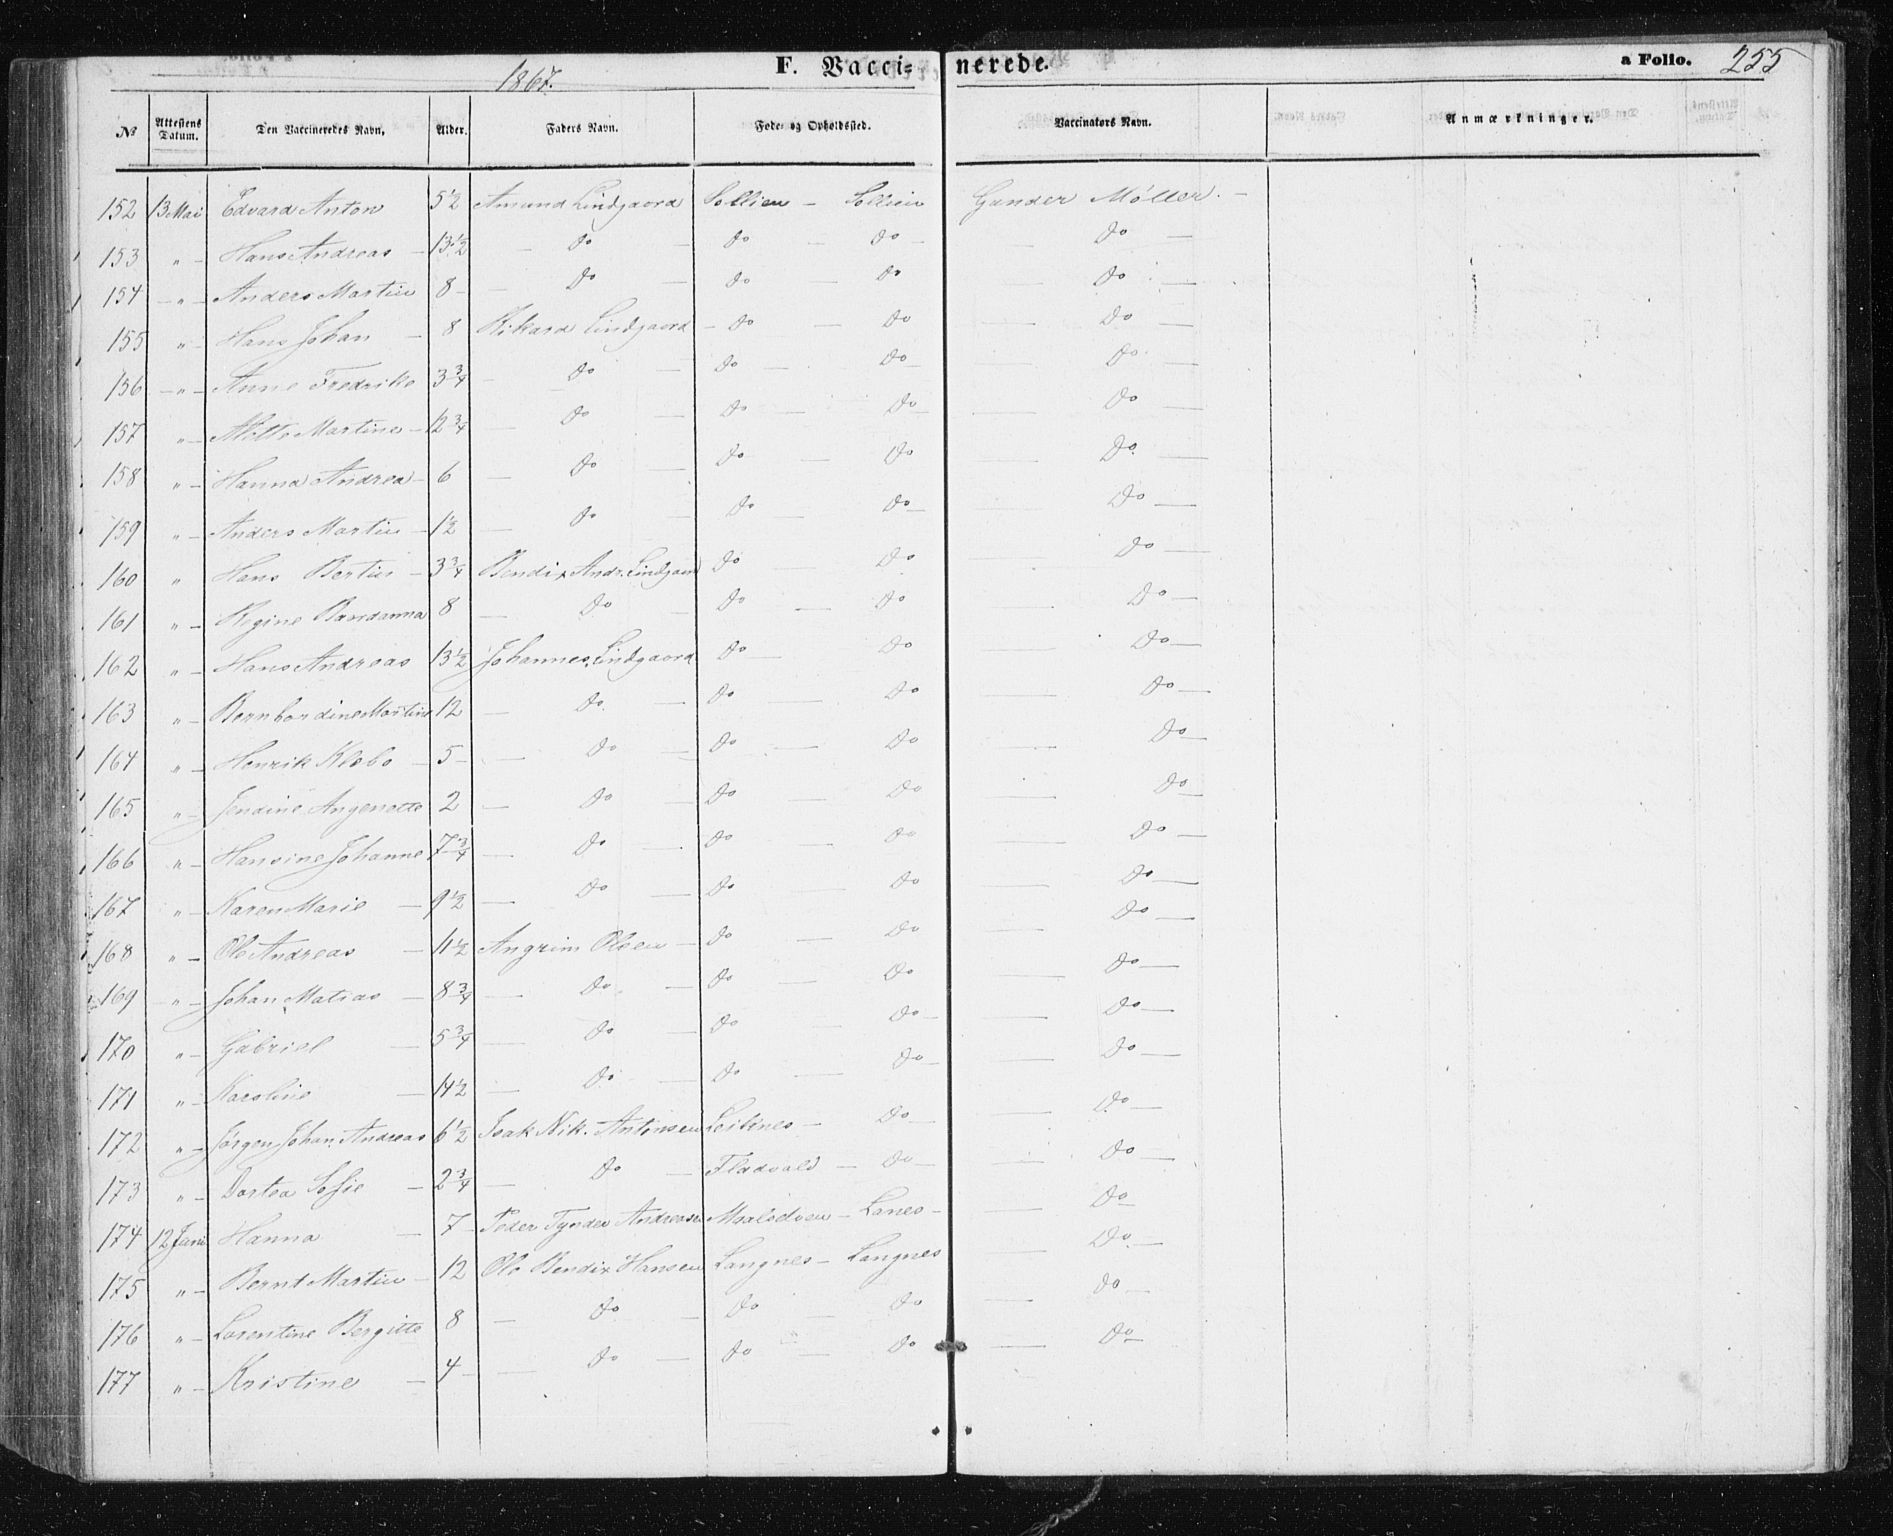 1867. F. Vaccinerede. a Folio. 255
№ Attestens Datum. Den Vaccineredes Navn. Alder. Faders Navn. Føde- og Opholdssted. Vaccinators Navn. Anmærkninger.
152 13 Mai Edvard Anton 5½ Amund Lindgaard Sollien — Sollien Gunder Møller. —
153 " — Hans Andreas — 13½ — Do — Do — Do — — Do —
154 — " — Anders Martin 8 — — Do — Do — Do — Do —
155 " — Hans Johan — 8 Rikard Lindgaard — Do — Do — Do —
156 — " — Anne Fredrike 3¾ — Do — Do — Do — — Do —
157 " — Martine — 12¾ — Do — Do — Do — — Do —
158 " — Hanna Andrea — 6 — Do — Do — Do — Do —
159 " — Anders Martin — 1½ — Do — Do — Do — — Do —
160 " Hans Bertin — 3¾ Bendix Andr. Lindgaard Do Do — Do —
161 " — Regine 8 — Do — Do — Do — Do —
162 " — Hans Andreas 13½ Johannes Lindgaard Do — Do — Do —
163 " — Bernhardine Martine 12 — Do — Do — Do — Do —
164 " — Henrik Klebo — 5 — — Do — Do — Do — Do —
165 " — Jendine Angenette 2 — Do — Do — Do — Do —
166 " — Hansine Johanne 7¾ — Do — Do — Do — Do —
167 " — Karen Marie — 9½ — Do — Do — Do — Do —
168 " — Ole Andreas — 11½ Angrim Olsen — Do — Do — Do —
169 — " — Johan Matias — 8¾ — Do — Do — Do — Do —
170 " — Gabriel — 5¾ — Do — Do — Do — — Do —
171 " — Karoline — 14½ — Do — Do — Do — — Do —
172 " — Jørgen Johan Andreas 6½ Isak Nik. Antonsen Leitnes — Do — — Do —
173 " — Dortea Sofie — 2¾ — Do — Fladvald — Do — — Do —
174 12 Juni Hanna — 7 — Peder Tynder Andreasen Maalsdven — Lanes — — Do —
175 " — Bernt Martin — 12 Ole Bendix Hansen Langnes — Langnes — Do —
176 " — Lorentine Bergitte 8 — Do — Do — Do — Do —
177 " — Kristine — 4 — — Do — Do — Do — Do —